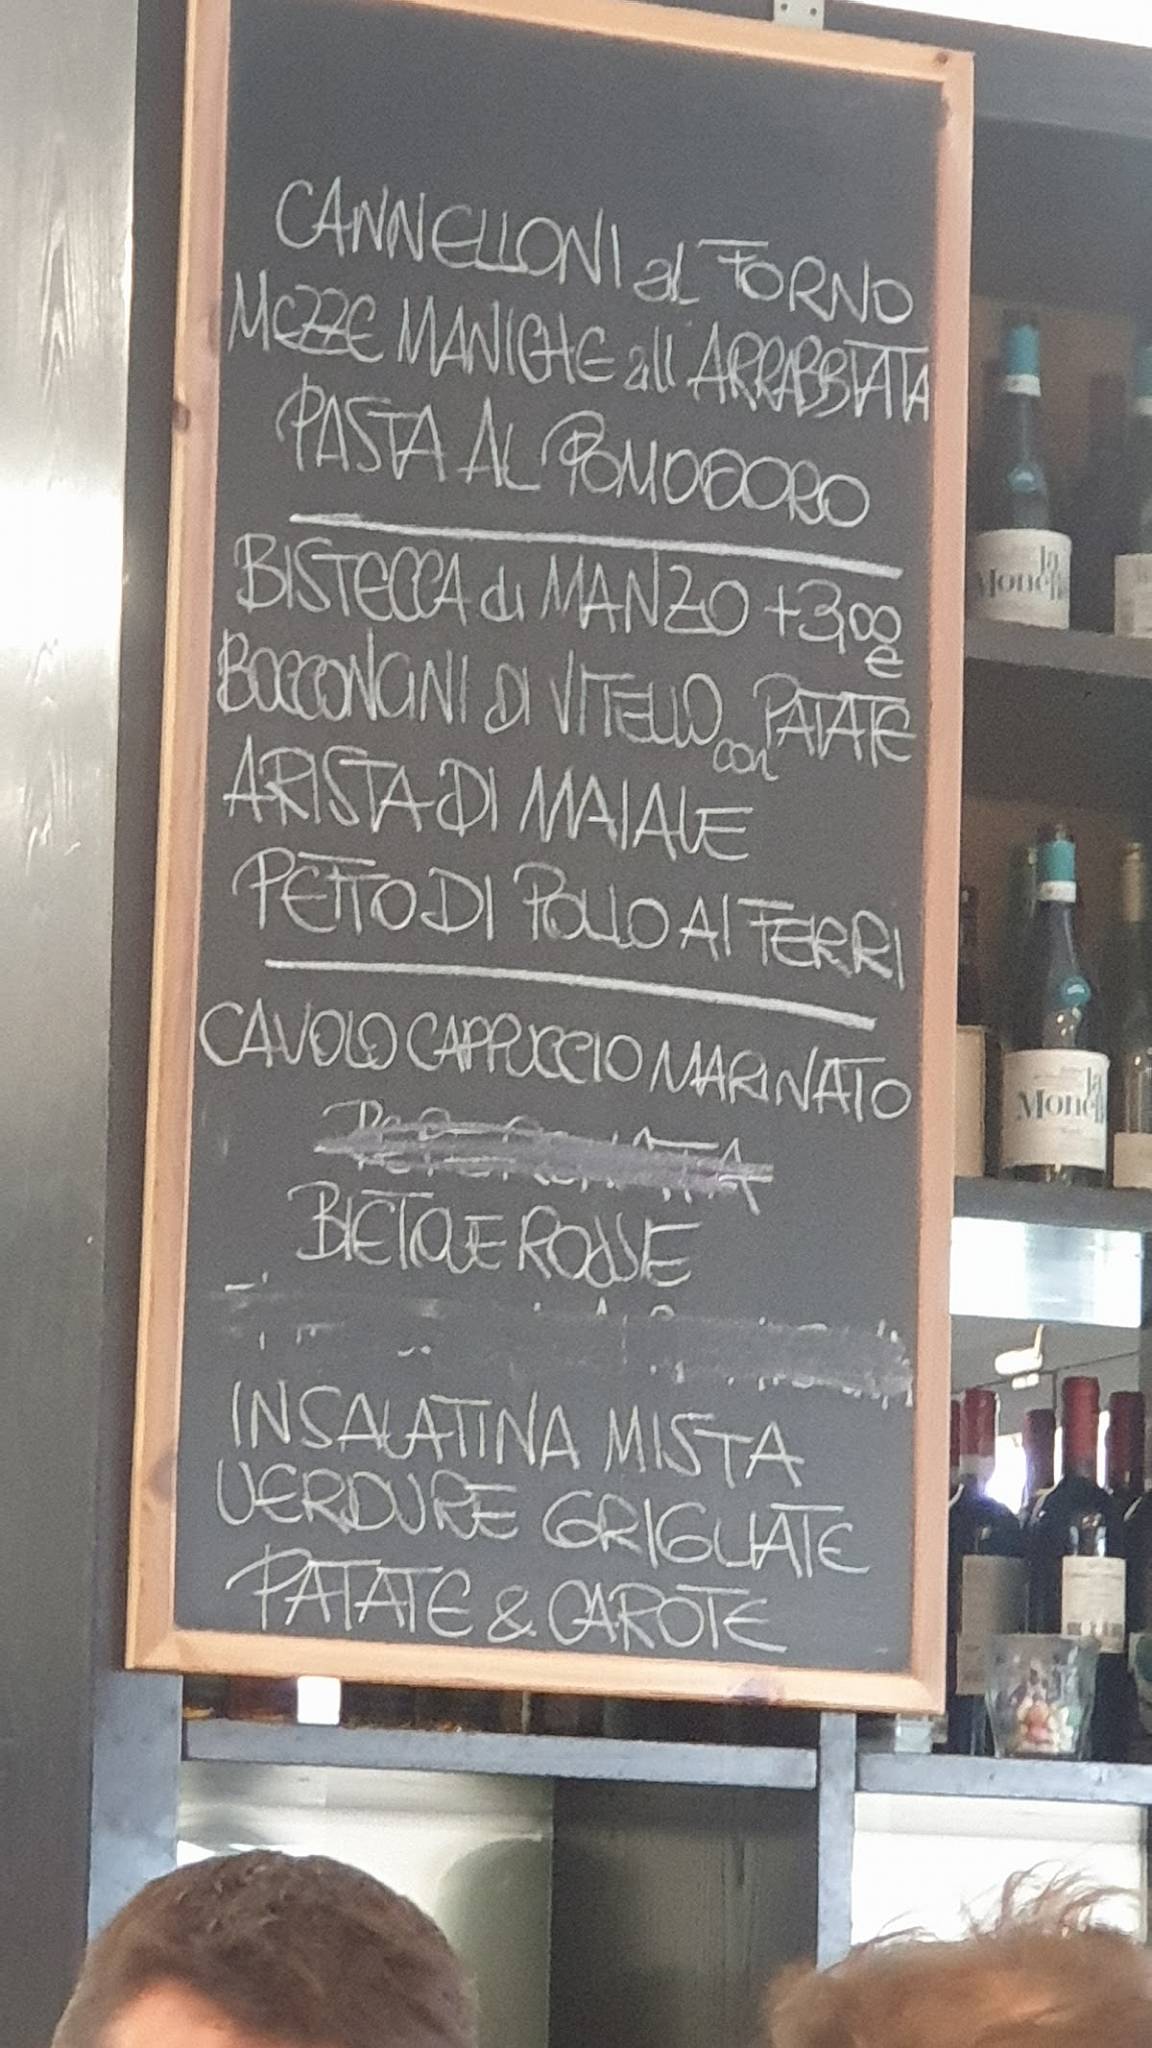 CANNELLONI al FORNO
MEZZE MANICHE all ARRABBIATA
PASTA AL POMODORO
BISTECCA di MANZO +3,00 €
BOCCONCINI DI VITELLO con PATATE
ARISTA DI MAIALE
PETTO DI POLLO AI FERRI
CAVOLO CAPPUCCIO MARINATO
BIETOLE ROSSE
INSALATINA MISTA
VERDURE GRIGLIATE
PATATE & CAROTE
la
Monella
la
Monella